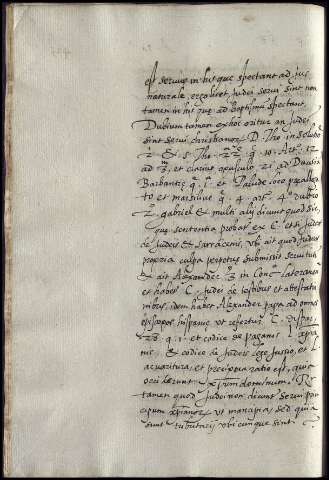 est servus in his que spectant ad jus
naturale, ergo licet judei servi sint non
tamen in his que ad baptismū spectant.
Dubium tamen ex hoc oritur an Judei
sint servi christianorū D. Tho in solutiō
2 & S. Tho. 2ª 2ᵉ q. 10. art. 12
ad 3ᵐ et etiam opusculo 21 ad Ducissā
Barbantiē q. 1. et Palude loco
to et q. 4 art. 4 dubio
2. gabriel & multi alij dicunt quod sic,
que sententia probat ex C. et si Judeos
de Judeis & sarracenis ubi ait quod Judeos
propria culpa perpetue submissit servituti
& ait Alexander 3 in Conc. lateranen
et habet C. Judei de testibus et attestatio
nibus, idem habet Alexander papa ad omnes
episcopos hispanie ut refertur C. dispar
23. q. 8 et codice de paganis l.
nis & codice de Judeis lege et l.
et precipua ratio est, quia
occiderunt xp̄um dominum.
tamen quod Judei non dicunt servi prin
cipum xp̄ianorū ut mancipia sed quia
sunt tributarij ubicunque sint.